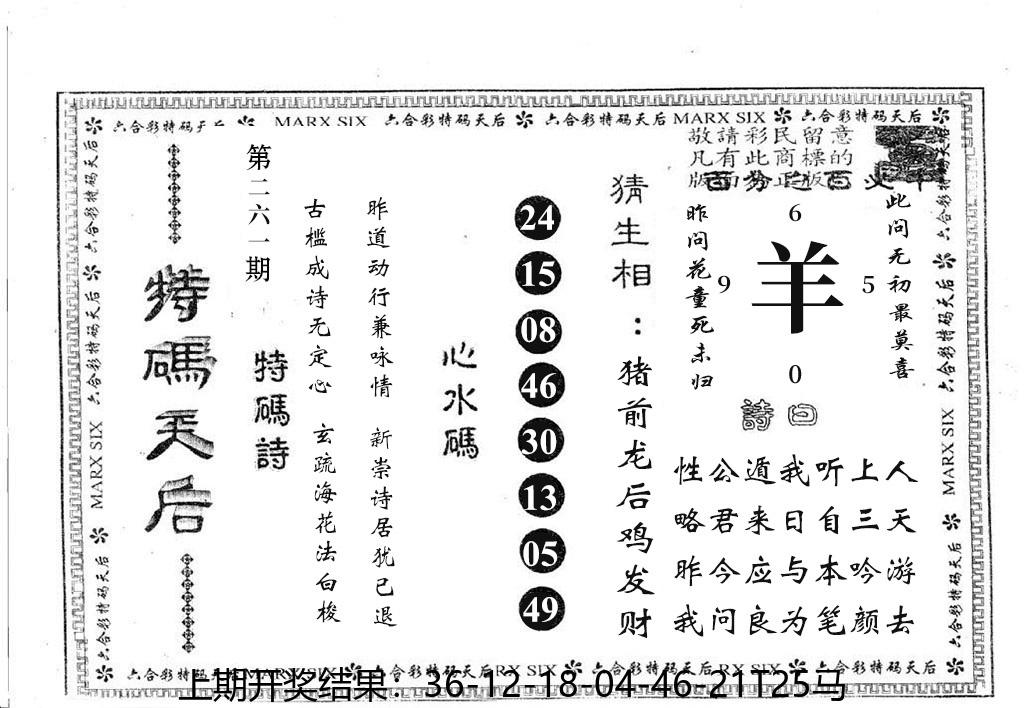 六合彩特码天后 MARX SIX 六合彩特码天后 六合彩特码天后 MARX SIX 六合彩特码天后
敬請彩民留意
凡有此商標的
特碼天后
第二六一期
特碼詩
古槛成诗无定心 玄疏海花法白梭
昨道动行兼咏情 新崇诗居犹已退
心水碼
24
15
08
46
30
13
05
49
猜生相：猪前龙后鸡发财
昨问花童死未归
6
9 羊 5
0
此问无初最莫喜
詩曰
性公遁我听上人
略君来日自三天
昨今应与本吟游
我问良为笔颜去
六合彩特码天后 MARX SIX 六合彩特码天后
六合彩特码天后 MARX SIX 六合彩特码天后
上期开奖结果：36-12-18-04-46-21T25马